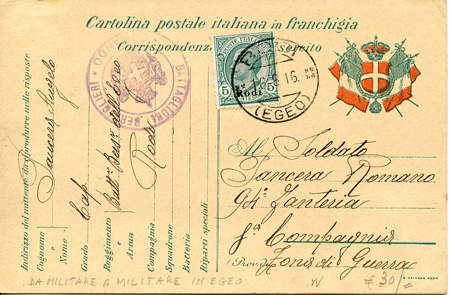 Cartolina postale italiana in franchigia
Corrispondenza Esercito
BATTAGLIONE BERSAGLIERI
POSTE ITALIANE
5 5
Rodi
16. 16.
(EGEO)
Indirizzo del mittente da riprodurre nelle risposte
Cognome
Nome
Grado
Reggimento
o
Arma
Compagnia
Squadrone
Batteria
Riparti speciali
Sancera Angelo
Cap.
Batt. Bers. dell'Egeo
Rodi
Al Soldato
Sancera Romano
94i Fanteria
Compagnia
(Prov. di
Zona di Guerra
DA MILITARE A MILITARE IN EGEO
W
€ 30/-